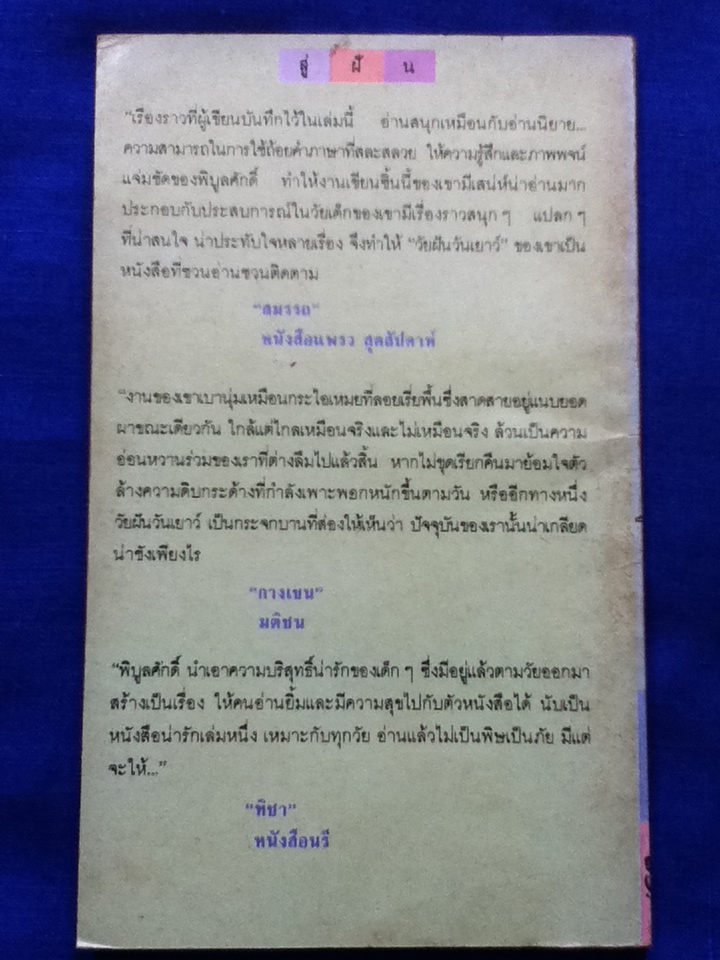 สู่ ฝัน
“เรื่องราวที่ผู้เขียนบันทึกไว้ในเล่มนี้ อ่านสนุกเหมือนกับอ่านนิยาย...
ความสามารถในการใช้ถ้อยคำภาษาที่สละสลวย ให้ความรู้สึกและภาพพจน์
แจ่มชัดของพิบูลศักดิ์ ทำให้งานเขียนชิ้นนี้ของเขามีเสน่ห์น่าอ่านมาก
ประกอบกับประสบการณ์ในวัยเด็กของเขามีเรื่องราวสนุก ๆ แปลก ๆ
ที่น่าสนใจ น่าประทับใจหลายเรื่อง จึงทำให้ “วัยฝันวันเยาว์” ของเขาเป็น
หนังสือที่ชวนอ่านชวนติดตาม
“สมรรถ”
หนังสือแพรว สุดสัปดาห์
“งานของเขาเบานุ่มเหมือนกระไอเหมยที่ลอยเรี่ยพื้นซึ่งสาดสายอยู่แนบยอด
ผาขณะเดียวกัน ใกล้แต่ไกลเหมือนจริงและไม่เหมือนจริง ล้วนเป็นความ
อ่อนหวานร่วมของเราที่ต่างลืมไปแล้วสิ้น หากไม่ขุดเรียกคืนมาย้อมใจตัว
ล้างความดิบกระด้างที่กำลังเพาะพอกหนักขึ้นตามวัน หรืออีกทางหนึ่ง
วัยฝันวันเยาว์ เป็นกระจกบานที่ส่องให้เห็นว่า ปัจจุบันของเรานั้นน่าเกลียด
น่าชังเพียงไร
“กวางเขน”
มติชน
“พิบูลศักดิ์ นำเอาความบริสุทธิ์น่ารักของเด็ก ๆ ซึ่งมีอยู่แล้วตามวัยออกมา
สร้างเป็นเรื่อง ให้คนอ่านยิ้มและมีความสุขไปกับตัวหนังสือได้ นับเป็น
หนังสือน่ารักเล่มหนึ่ง เหมาะกับทุกวัย อ่านแล้วไม่เป็นพิษเป็นภัย มีแต่
จะให้...”
“ทิชา”
หนังสือนรี